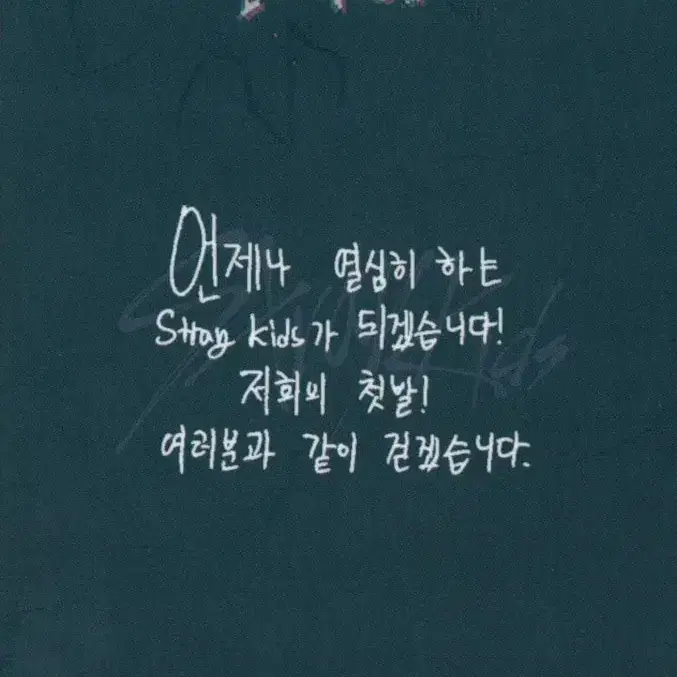 언제나 열심히 하는
Stray kids가 되겠습니다!
저희의 첫발!
여러분과 같이 걷겠습니다.
Stray Kids